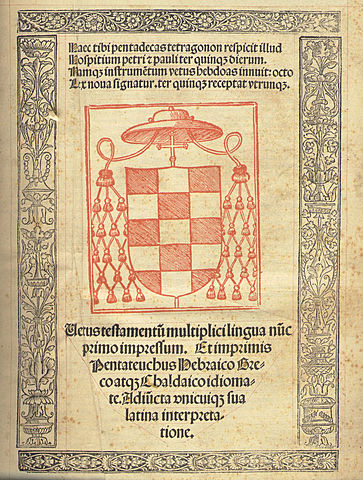 Haec tibi pentadecas tetragonon respicit illud
Hospitium petri ⁊ pauli ter quinqꝫ dierum.
Namqꝫ instrumētum vetus hebdoas innuit: octo
Lex noua signatur. ter quinqꝫ receptat vtrunqꝫ.
Uetus testamentū multiplici lingua nūc
primo impressum. Et imprimis
Pentateuchus Hebraico Gre-
co atqꝫ Chaldaico idioma-
te. Adiūcta vnicuiqꝫ sua
latina interpreta-
tione.